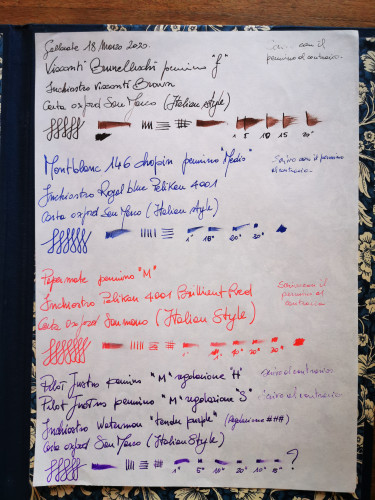 Sabato 18 Marzo 2020.
Visconti Brunelleschi pennino "f"
scrivo con il
pennino al contrario.
Inchiostro Visconti Brown
Carta oxford San Marco (Italian style)
1 5 10 15 20"
Montblanc 146 chopin pennino "Medio"
Scrivo con il pennino
al contrario.
Inchiostro Royal blue Pelikan 4001
Carta oxford San Marco (Italian style)
1" 15" 20" 30"
Papermate pennino "M"
Scrivere con il
pennino al
contrario
Inchiostro Pelikan 4001 Brilliant Red
Carta oxford San marco (Italian Style)
1" 10" 20" 30"
Pilot Justus pennino "M" regolazione "H"
Scrivo al contrario
Pilot Justus pennino "M" regolazione "S"
Scrivo al contrario
Inchiostro Waterman "tender purple" (###)
Carta oxford San Marco (Italian Style)
1" 5" 10" 20" 10" 15" ?